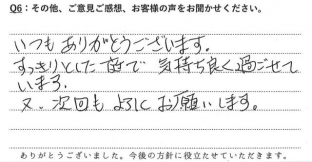 Q6：その他、ご意見ご感想、お客様の声をお聞かせください。
いつもありがとうございます。
すっきりとした庭で気持ち良く過ごせて
います。
又、次回もよろしくお願いします。
ありがとうございました。今後の方針に役立たせていただきます。